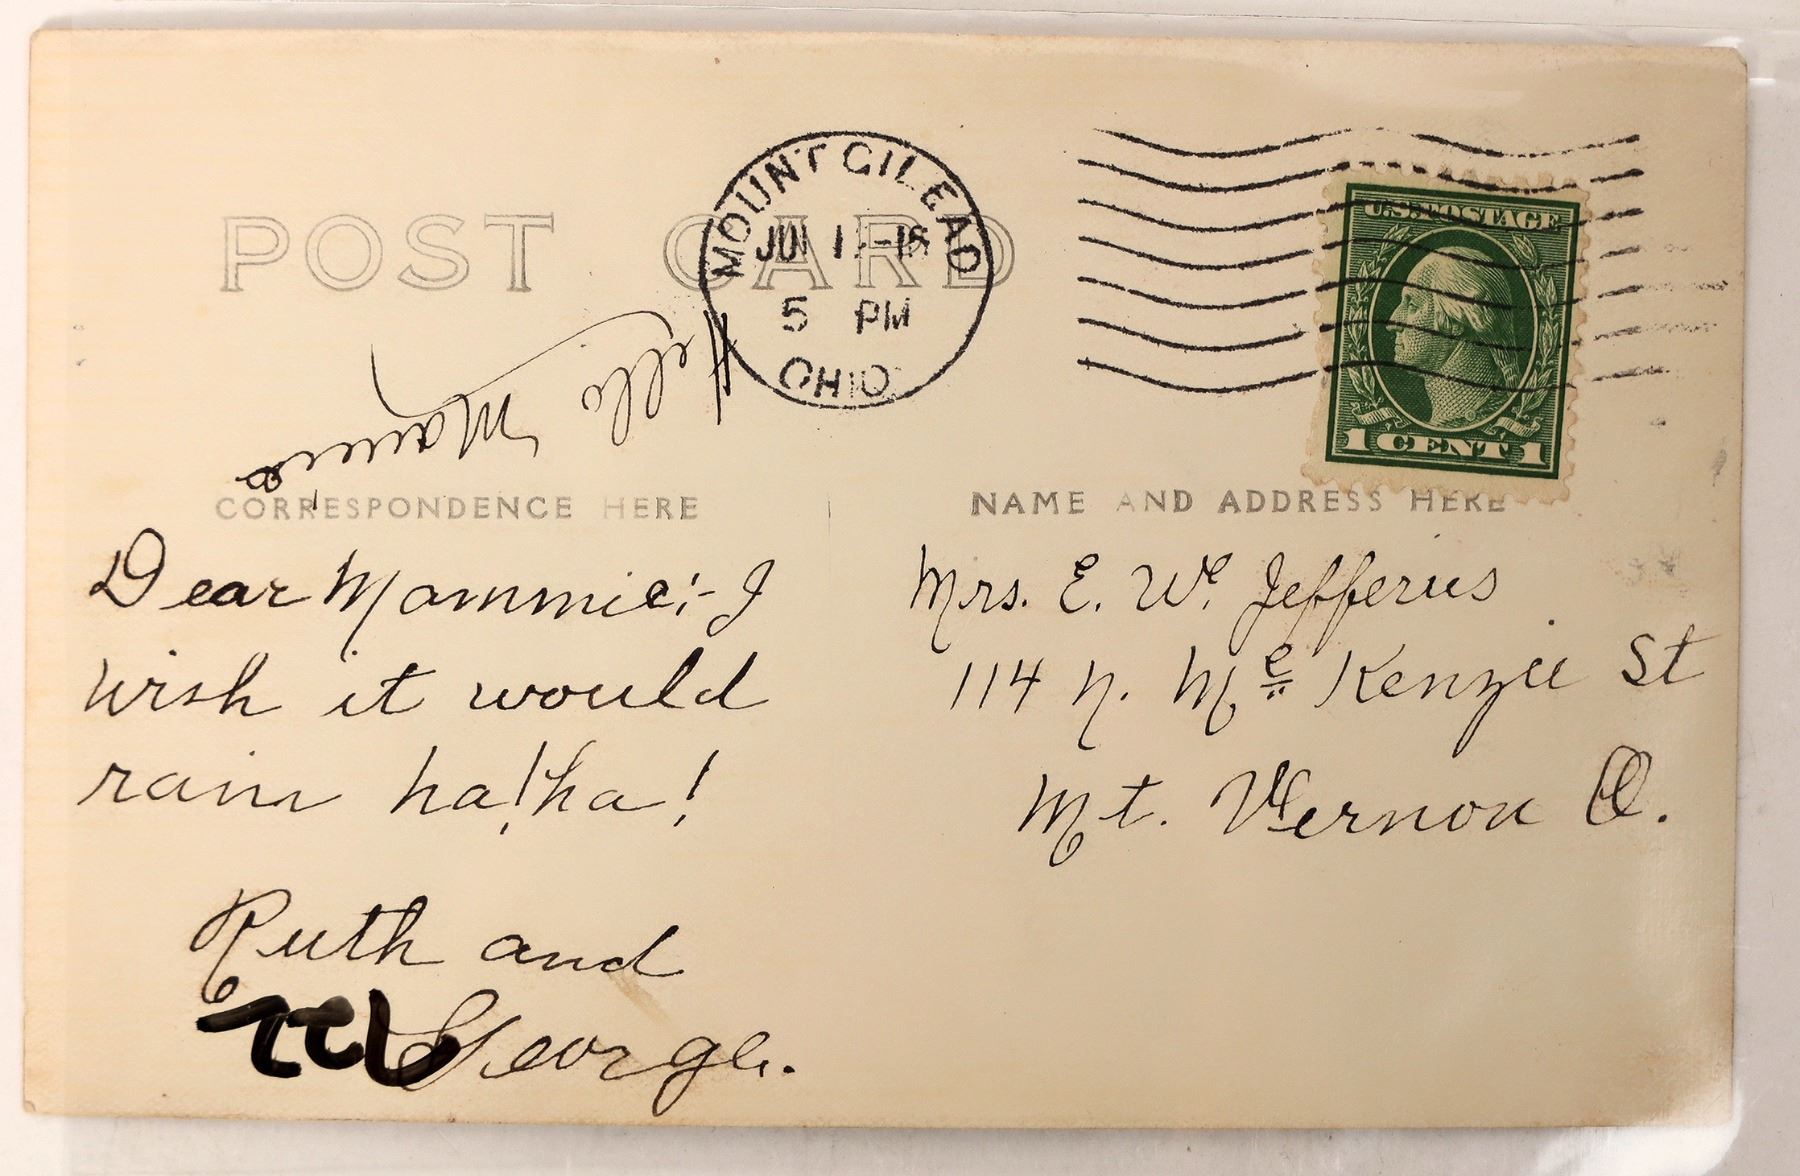 POST CARD
MOUNT GILEAD
5 PM
OHIO
U.S. POSTAGE
1 CENT 1
Hello
CORRESPONDENCE HERE
NAME AND ADDRESS HERE
Dear Mammie:- I
wish it would
rain ha! ha!
Ruth and
George.
Mrs. E. W. Jefferies
114 N. Mc Kenzie St
Mt. Vernon O.